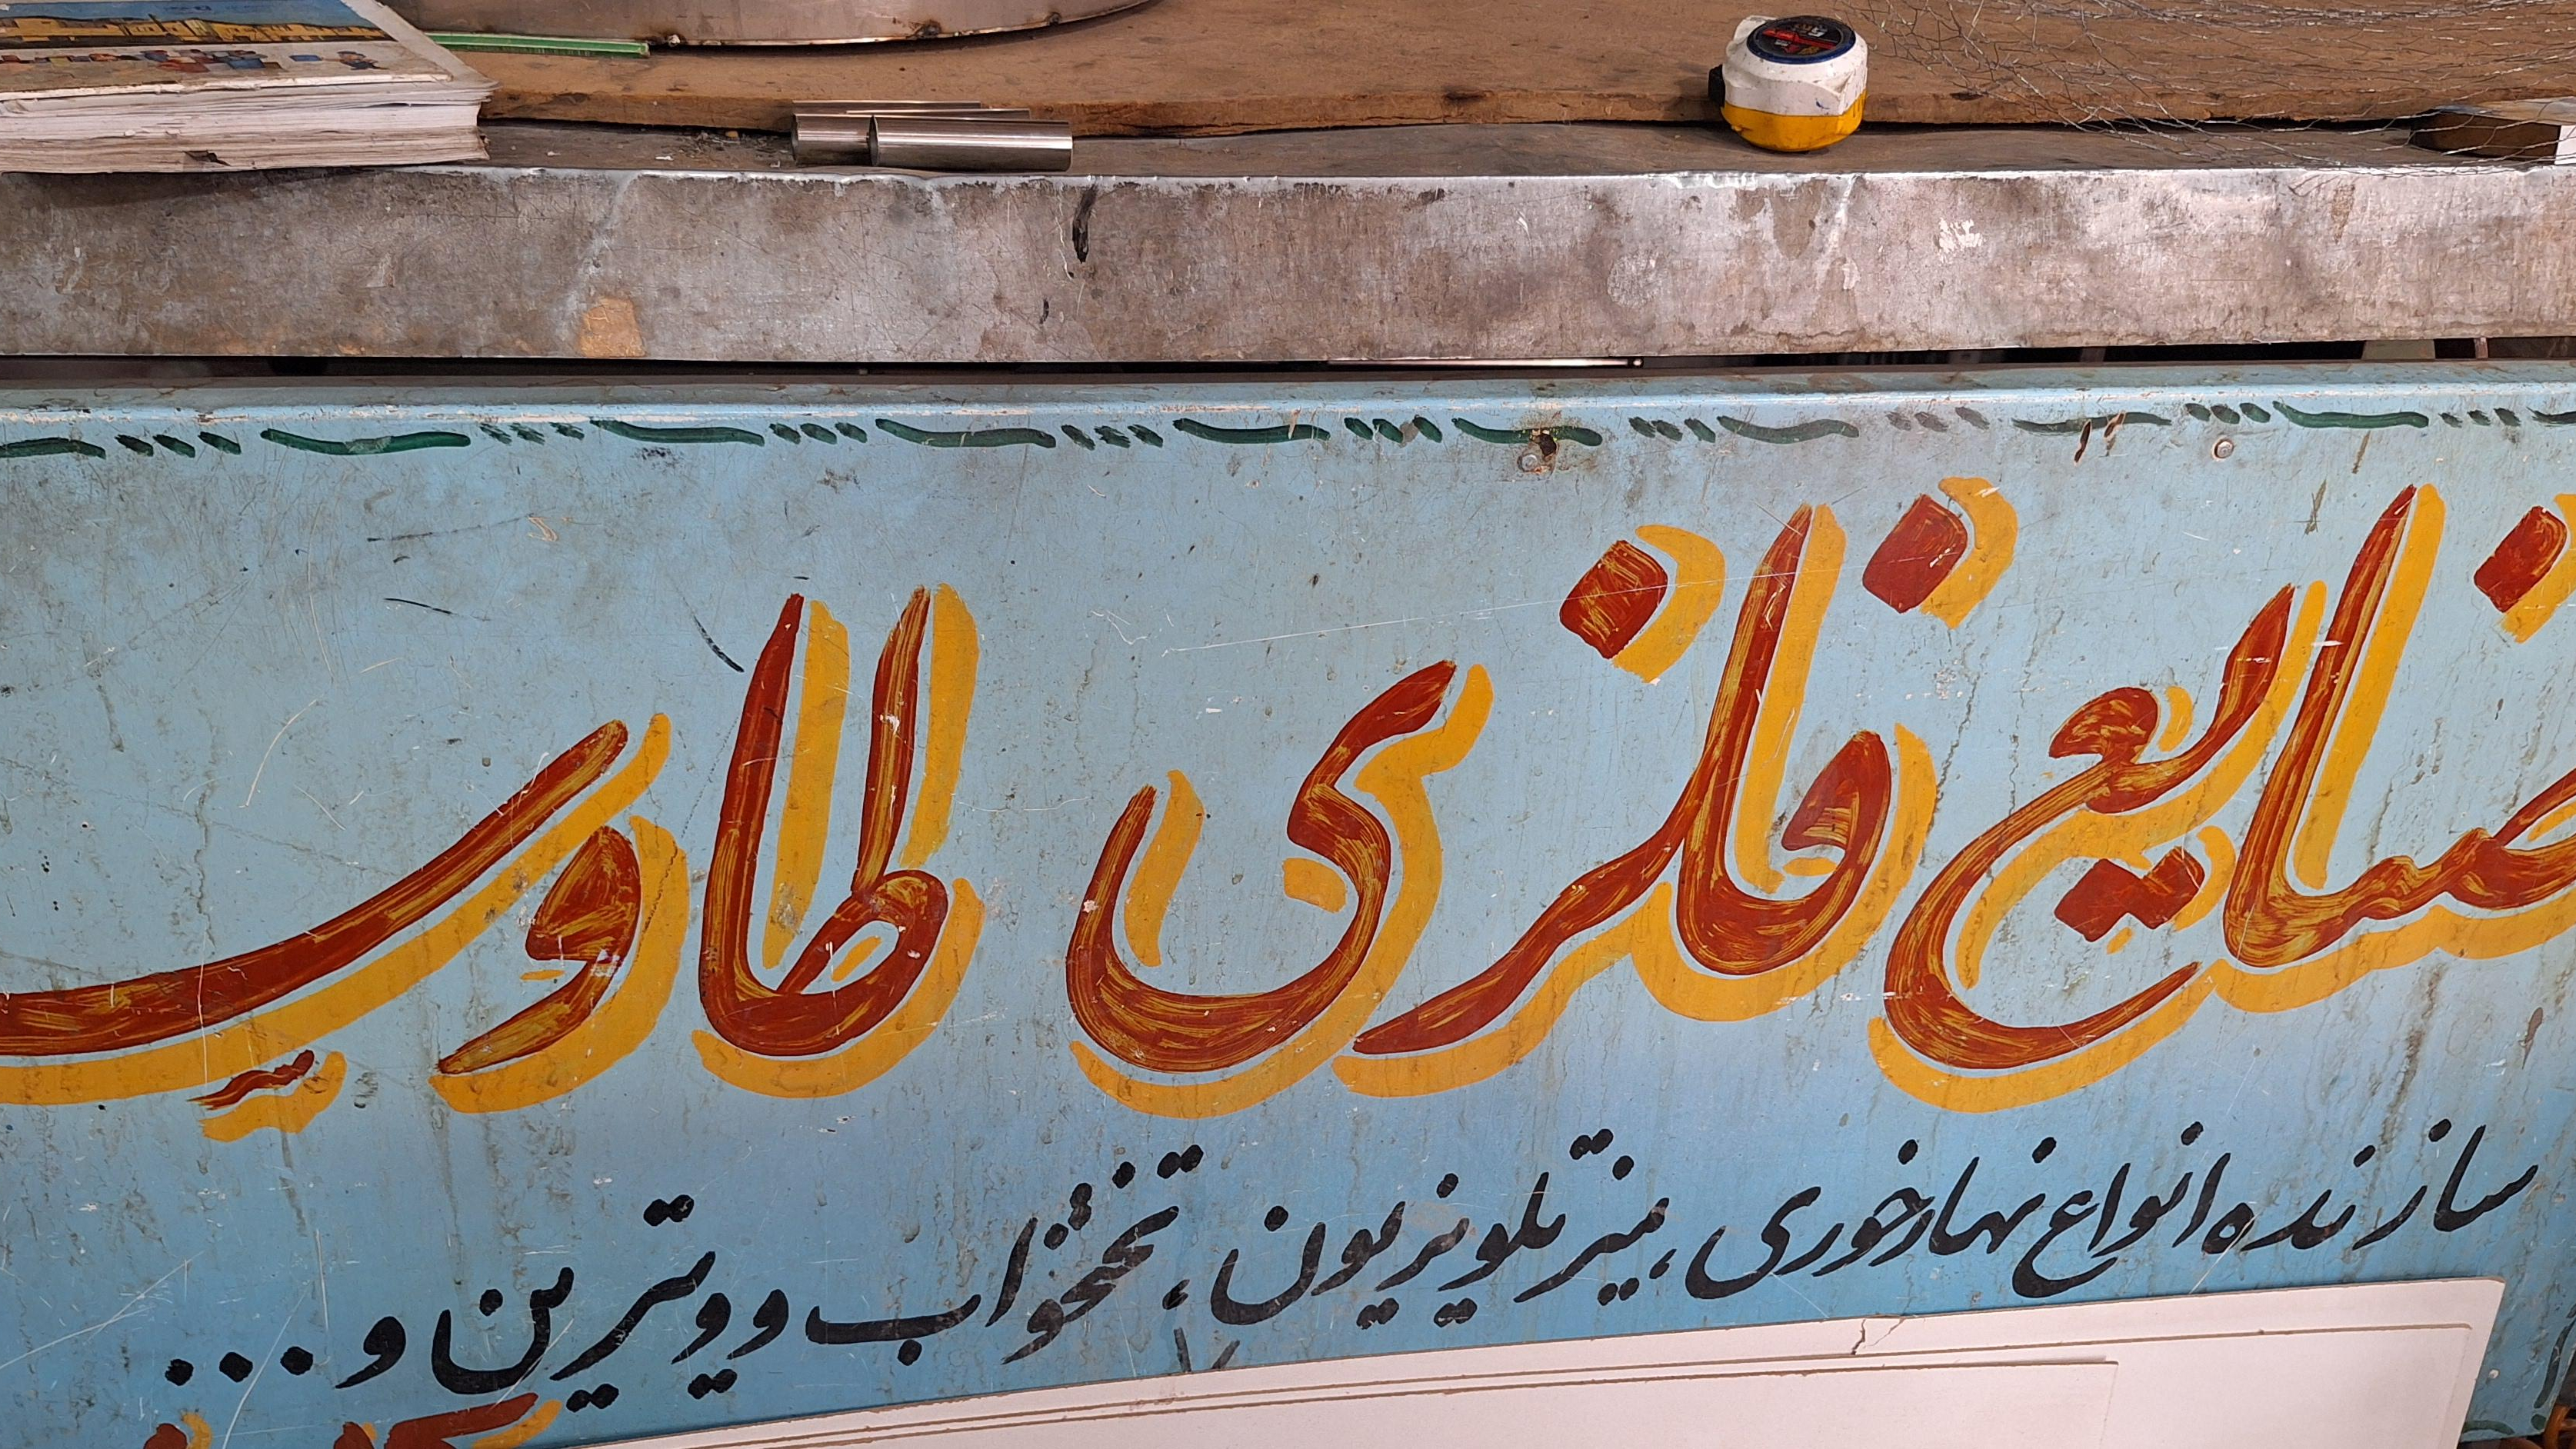 صنایع فلزی طاوس
سازنده انواع نهارخوری، میز تلویزیون، تختخواب و ویترین و...